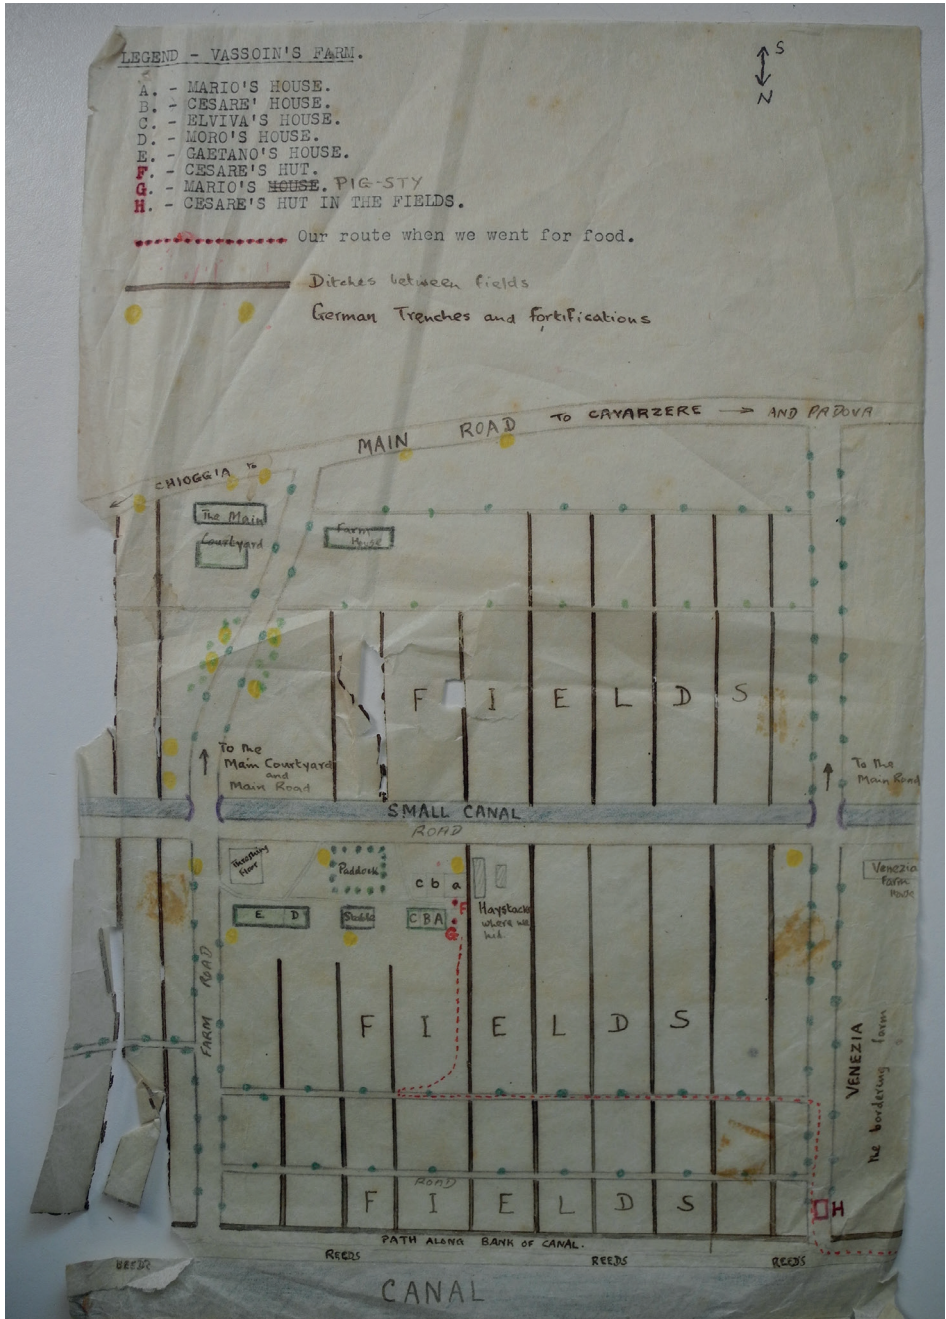 LEGEND - VASSOIN'S FARM.
S
N
A. - MARIO'S HOUSE.
B. - CESARE' HOUSE.
C. - ELVIVA'S HOUSE.
D. - MORO'S HOUSE.
E. - GAETANO'S HOUSE.
F. - CESARE'S HUT.
G. - MARIO'S HOUSE. PIG-STY
H. - CESARE'S HUT IN THE FIELDS.
Our route when we went for food.
Ditches between fields
German Trenches and fortifications
MAIN ROAD TO CAVARZERE → AND PADOVA
← CHIOGGIA to
The Main
Courtyard
Farm
House
FIELDS
To the
Main Courtyard
and
Main Road
To the
Main Road
SMALL CANAL
ROAD
Threshing
Floor
Paddock
c b a
Venezia
Farm
House
E D
Stable
C B A
F
G
Haystacks
where we
hid.
FARM ROAD
FIELDS
VENEZIA
the bordering farm
ROAD
FIELDS
H
PATH ALONG BANK OF CANAL.
REEDS
REEDS
REEDS
REEDS
CANAL